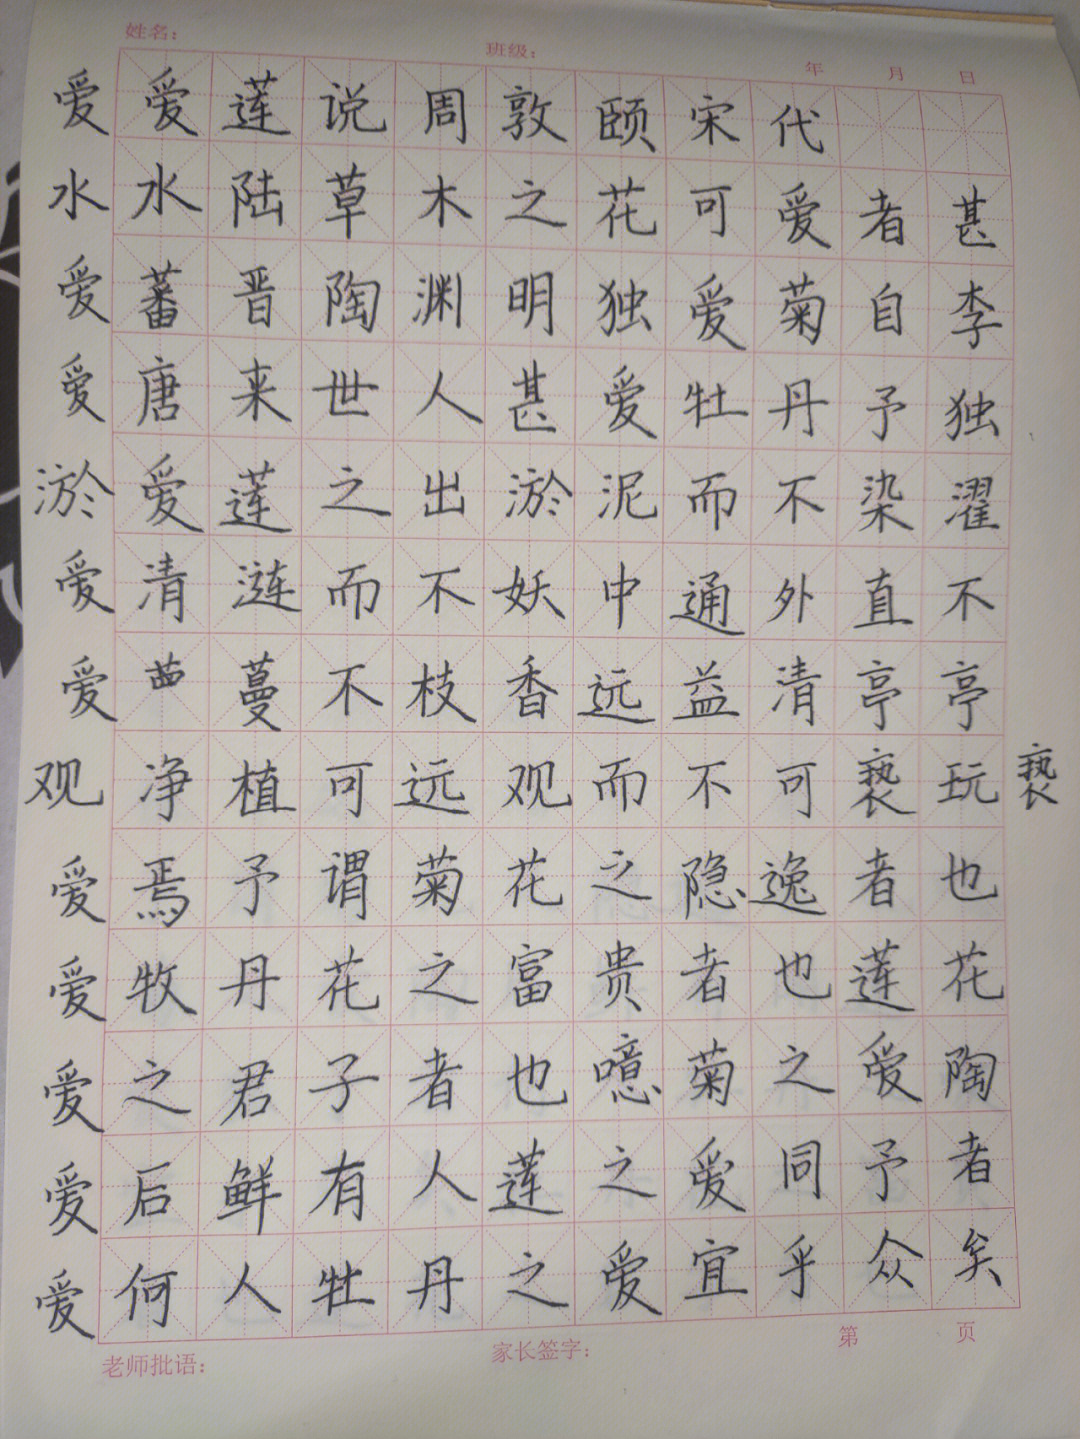 姓名： 班级： 年 月 日
爱 爱莲说周敦颐宋代
水 水陆草木之花可爱者甚
爱 蕃晋陶渊明独爱菊自李
爱 唐来世人甚爱牡丹予独
淤 爱莲之出淤泥而不染濯
爱 清涟而不妖中通外直不
爱 蔓不枝香远益清亭亭
观 净植可远观而不可亵玩 亵
爱 焉予谓菊花之隐逸者也
爱 牧丹花之富贵者也莲花
爱 之君子者也噫菊之爱陶
爱 后鲜有人莲之爱同予者
爱 何人牡丹之爱宜乎众矣
老师批语： 家长签字： 第 页